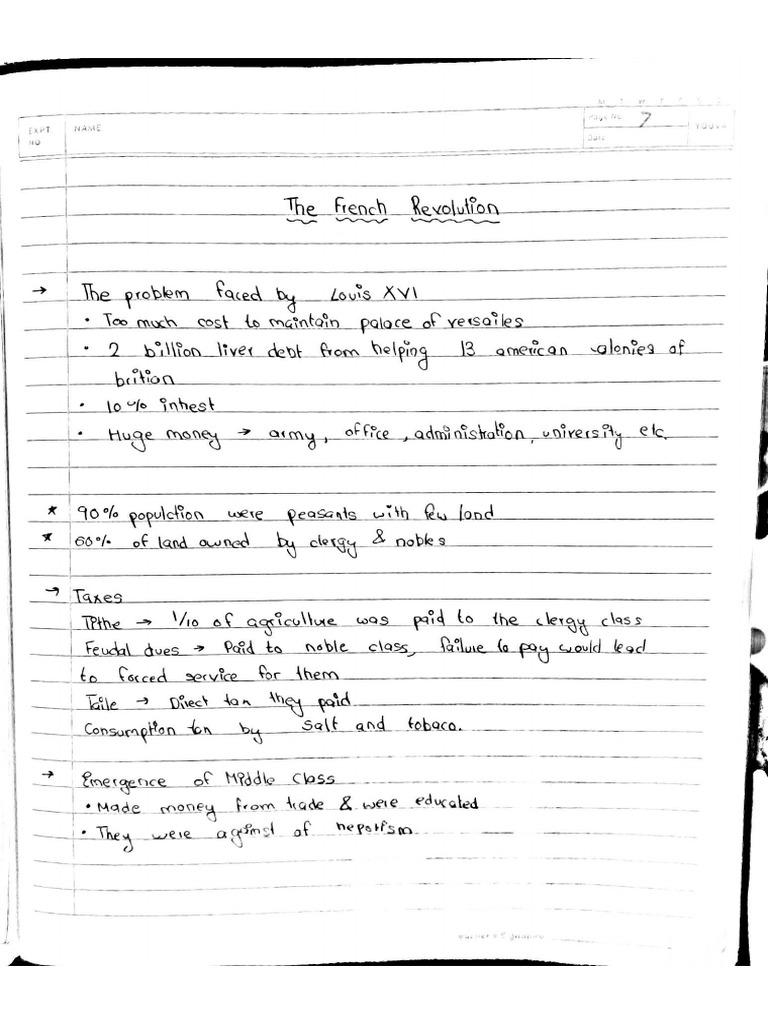 M T W T F S S
EXPT. NO
NAME
Page No. 7
Date
YOUVA
The French Revolution
→ The problem faced by Louis XVI
• Too much cost to maintain palace of versailes
• 2 billion liver debt from helping 13 american colonies of
brition
• 10% intrest
• Huge money → army, office, administration, university etc.
* 90% populction were peasants with few land
* 60% of land owned by clergy & nobles
→ Taxes
Tithe → 1/10 of agriculture was paid to the clergy class
Feudal dues → Paid to noble class, failure to pay would lead
to forced service for them
Taile → Direct tax they paid
Consumption tax by salt and tobaco.
→ Emergence of Middle class
• Made money from trade & were educated
• They were against of nepotism